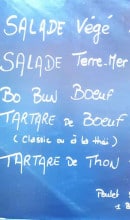 SALADE Végé
SALADE Terre-Mer
Bo Bun Boeuf
TARTARE de Boeuf
(Classic ou à la thaï)
TARTARE de Thon
Poulet
1 B